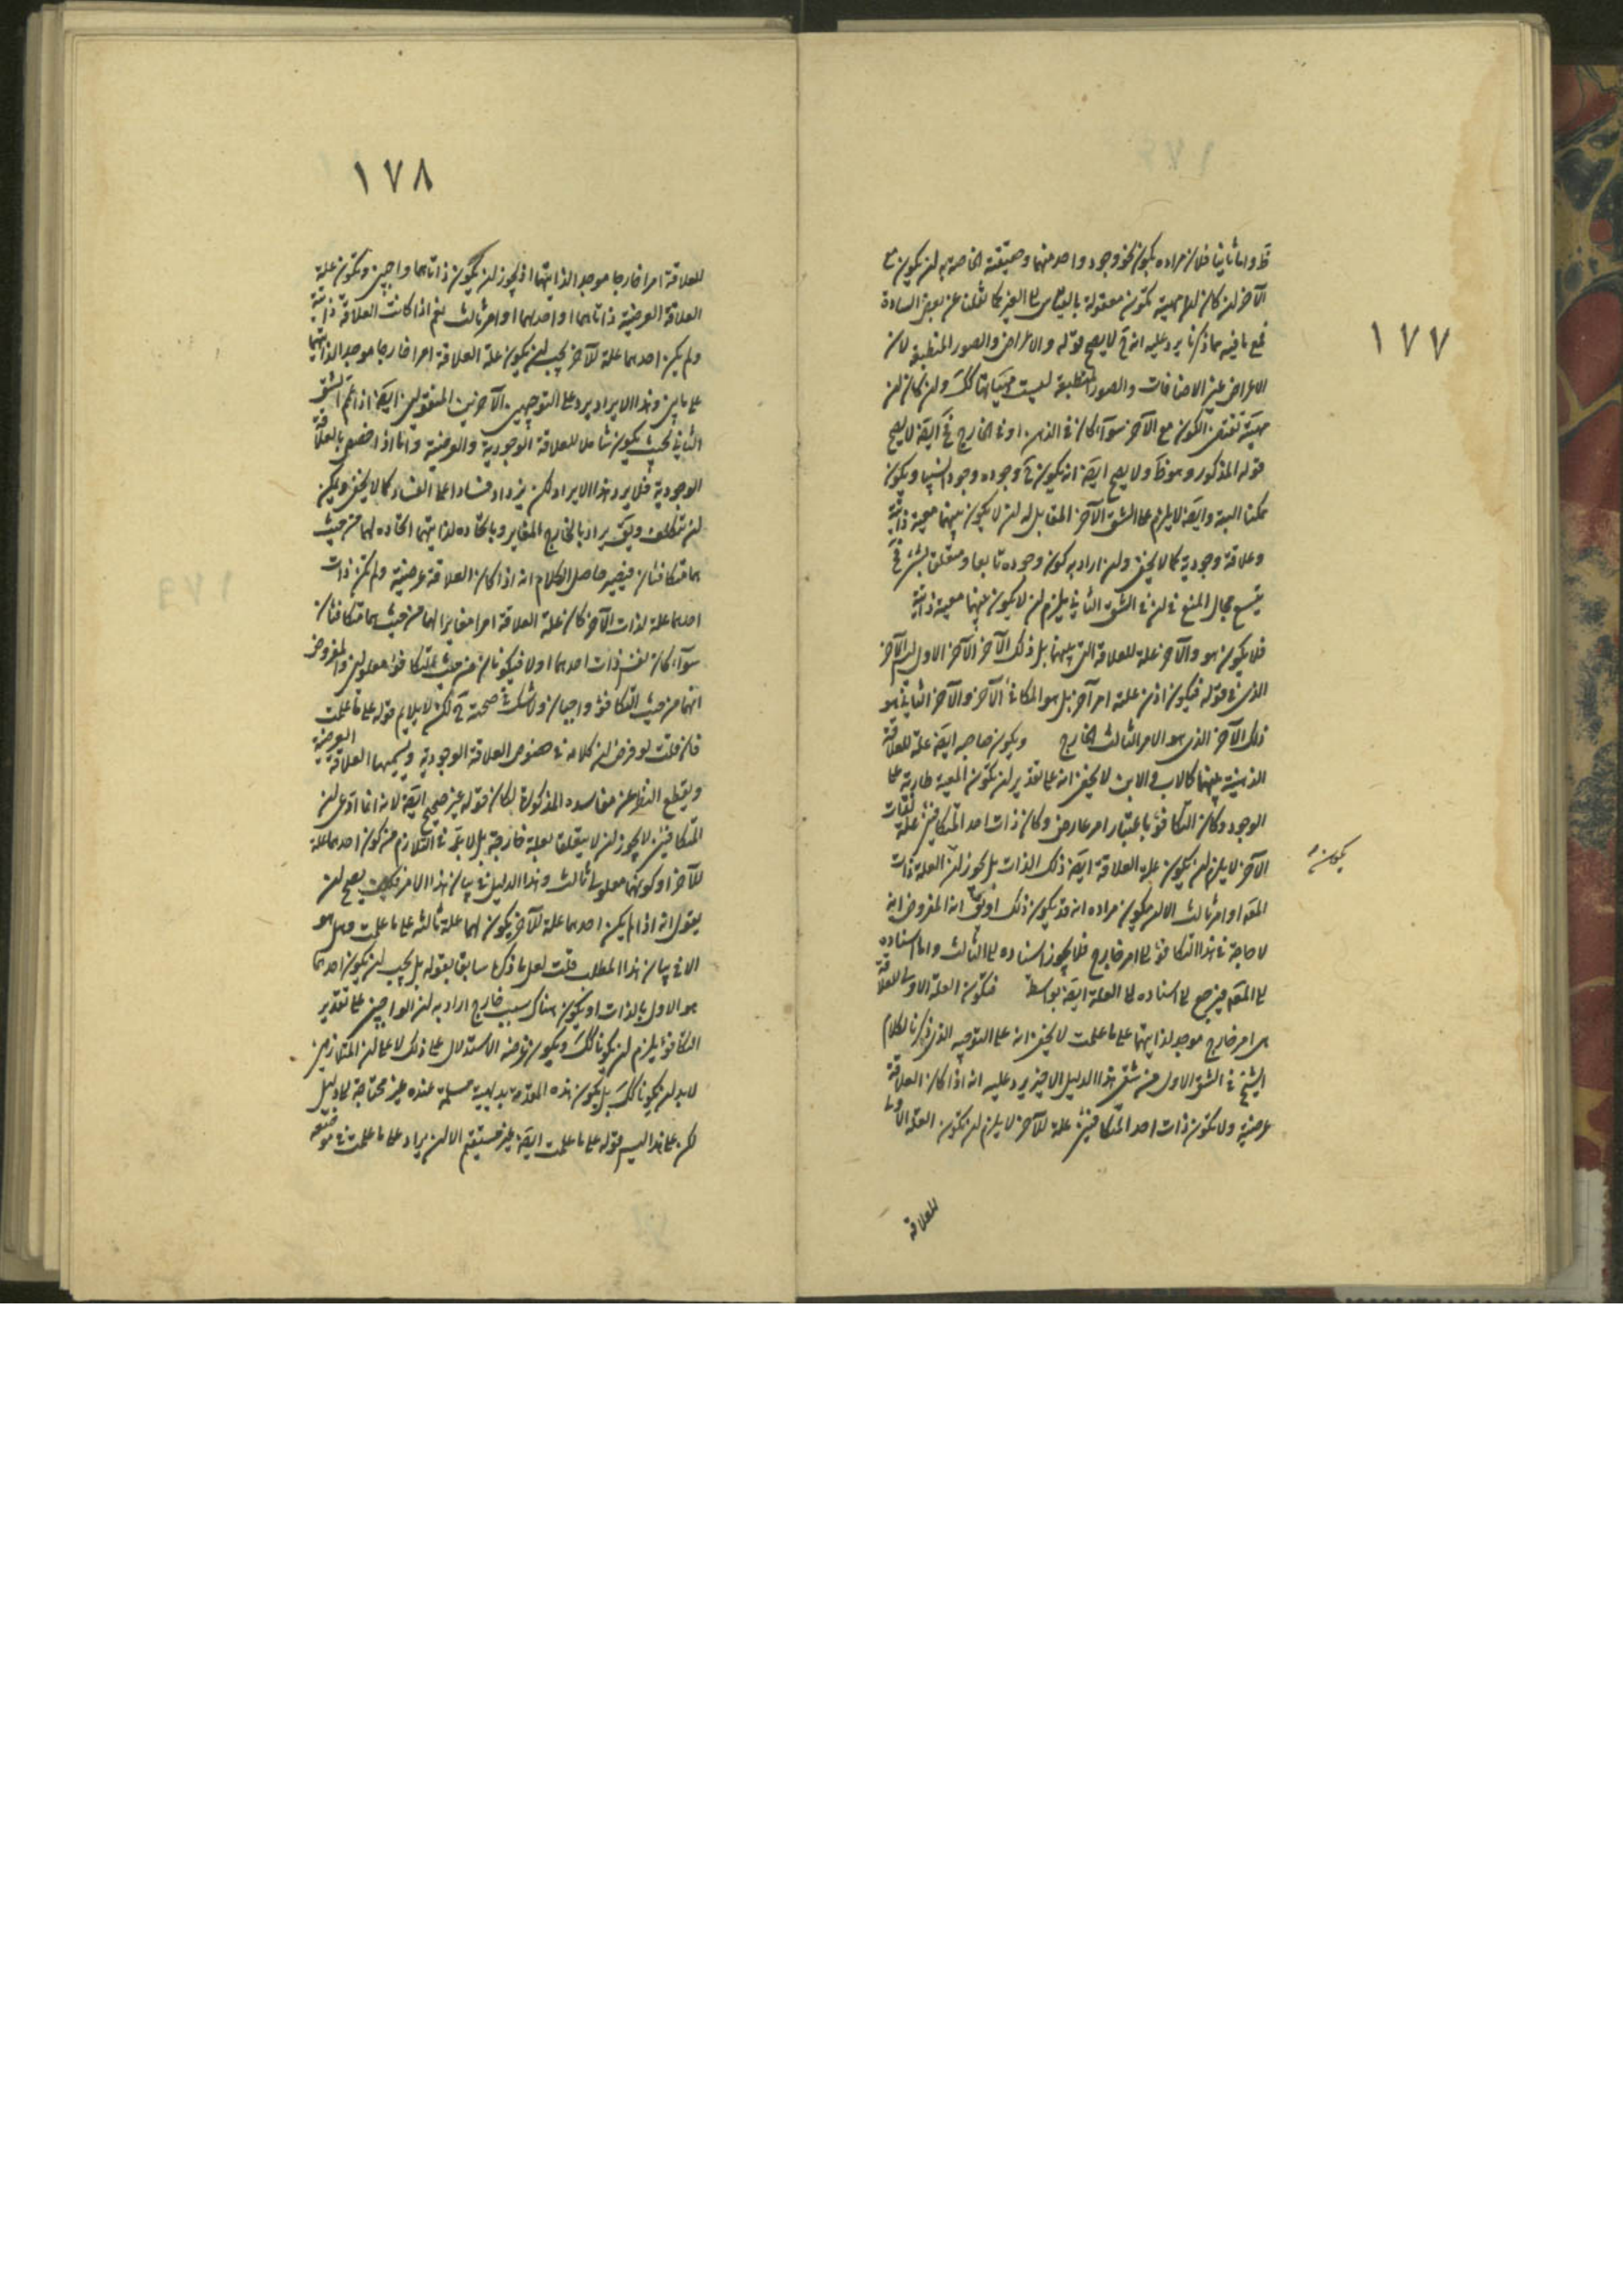 ١٧٧
قط واما ثانيا فلان مراده بكون نحو وجود واحد منهما وحقيقته الخاصة به ان يكون مع
الآخر ان كان لها مهية تكون معقولة بالقياس الى الغير كما نقلنا عن بعض السادة
فمع ما فيه مما ذكرنا يرد عليه انه ح لا يصح قوله والاعراض والصور المنطبعة لان
الاعراض غير الاضافات والصور المنطبعة ليست مهياتها كك وان كان ان
مهيته تقتضى الكون مع الآخر سوآء كان فى الذهن او فى الخارج فح ايضا لا يصح
قوله المذكور وهو ظ ولا يصح ايضا انه يكون ح وجوده وجودا نسبيا ويكون
ممكنا البتة وايضا لا يلزم على الشق الآخر المقابل له ان لا يكون بينهما معية ذاتية
وعلاقة وجودية كما لا يخفى وان اراد به كون وجوده تابعا ومتعلقا بشئ فح
يتسع مجال المنع فى ان فى الشق الثانى يلزم ان لا يكون بينهما معية ذاتية
فلا يكون هو والآخر علة للعلاقة التى بينهما بل ذلك الآخر الآخر الاول الآخر
الذى فى قوله فيكون اذن علته امر آخر بل هو المكافئ الآخر والآخر الثانى هو
ذلك الآخر الذى هو الامر الثالث الخارج ويكون صاحبه ايضا علة للعلاقة
الذهنية بينهما كالاب والابن لا يخفى انه على تقدير ان تكون المعية طارية على
الوجود وكان التكافؤ باعتبار امر عارض وكان ذات احد المتكافئين علة لذات
الآخر لا يلزم ان يكون علة العلاقة ايضا ذلك الذات بل يجوز ان يكون العلة ذات
المتقدم او امر ثالث الا ان يكون مراده انه قد يكون ذلك او يق انه المفروض انه
لا حاجة فى هذا التكافؤ الى امر خارج فلا يجوز اسناده الى الثالث واما اسناده
الى المتقدم فيرجع الى اسناده الى العلة ايضا بواسطة فتكون العلة الاولى للعلاقة
هى امر خارج موجد لذاتيهما على ما علمت لا يخفى انه على التوجيه الذى ذكرنا لكلام
الشيخ فى الشق الاول من شقى هذا الدليل الاخير يرد عليه انه اذا كان العلاقة
عرضية ولا تكون ذات احد المتكافئين علة للآخر لا يلزم ان تكون العلة الاولى
للعلاقة
يكون
١٧٨
للعلاقة امرا خارجا موجدا لذاتيهما اذ يجوز ان يكون ذاتاهما واجبين وتكون علة
العلاقة العرضية ذاتاهما او احدهما او امر ثالث نعم اذا كانت العلاقة ذاتية
ولم يكن احدهما علة للآخر يجب ان يكون علة العلاقة امرا خارجا موجدا لذاتيهما
على ما بين وهذا الايراد يرد على التوجيهين الآخرين المنقولين ايضا اذا عمم الشق
الثانى بحيث يكون شاملا للعلاقة الوجودية والعرضية واما اذا خصص بالعلاقة
الوجودية فلا يرد هذا الايراد لكن يزداد فسادا على الفساد كما لا يخفى ويمكن
ان يتكلف ويق يراد بالخارج المغاير وبايجاده لذاتيهما ايجاده لهما من حيث
هما متكافئان فيصير حاصل الكلام انه اذا كان العلاقة عرضية ولم تكن ذات
احدهما علة لذات الآخر كان علة العلاقة امرا مغايرا لهما من حيث هما متكافئان
سوآء كان نفس ذات احدهما اولا فيكونان من حيث التكافؤ معلولين والمفروض
انهما من حيث التكافؤ واجبان ولا شك فى صحته ح لكن لا يلايم قوله على ما علمت
فان قلت لو فرض ان كلامه فى خصوص العلاقة الوجودية ويسميها العلاقة العرضية
ويقطع النظر عن مفاسده المذكورة لكان قوله غير صحيح ايضا لانه انما ادعى ان
المتكافئين لا يجوز ان لا يتعلقا بعلة خارجة بل لا بد فى التلازم من كون احدهما علة
للآخر او كونهما معلولى ثالث وهذا الدليل فى بيان هذا الامر فكيف يصح ان
يقول انه اذا لم يكن احدهما علة للآخر يكون لهما علة ثالثة على ما علمت وهل هو
الا فى بيان هذا المطلب قلت لعل ما ذكره سابقا بقوله بل يجب ان يكون احدهما
هو الاول بالذات او يكون هناك سبب خارج اراد به ان الواجبين على تقدير
التكافؤ يلزم ان يكونا كك ويكون غرضه الاستدلال على ذلك لا على ان المتلازمين
لا بد ان يكونا كك بل يكون هذه المقدمة بديهية مسلمة عنده غير محتاجة الى دليل
لكن على هذا ليس قوله على ما علمت ايضا غير مستقيم الا ان يراد على ما علمت فى موضعه